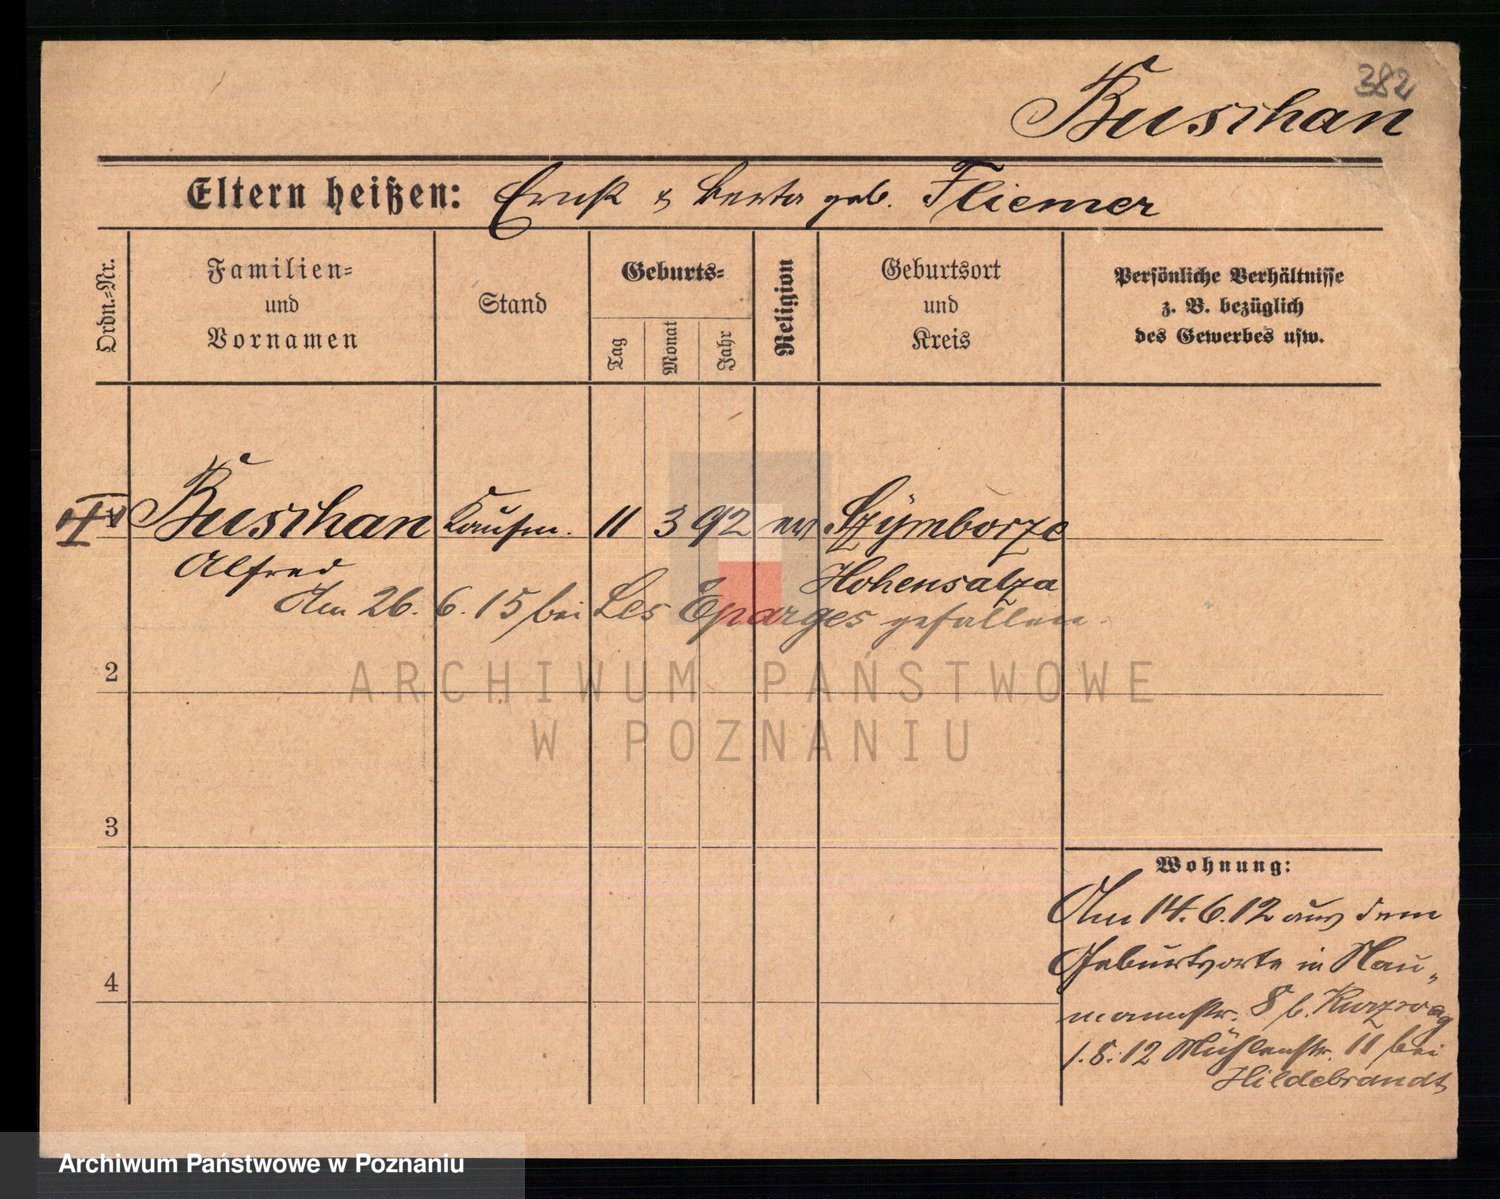 382
Buschan
Eltern heißen: Ernst & Berta geb. Fliemer
Ordn.=Nr.
Familien=
und
Vornamen
Stand
Geburts=
Tag
Monat
Jahr
Religion
Geburtsort
und
Kreis
Persönliche Verhältnisse
z. B. bezüglich
des Gewerbes usw.
Buschan Kaufm. 11 3 92 ev Szymborze
Alfred Hohensalza
Am 26. 6. 15 bei Les Eparges gefallen.
2
3
4
Wohnung:
Am 14. 6. 12 aus dem
Geburtsorte in Nau-
mannstr. 8 b. Kurzweg
1. 8. 12 Mühlenstr. 11 bei
Hildebrandt
ARCHIWUM PAŃSTWOWE
W POZNANIU
Archiwum Państwowe w Poznaniu